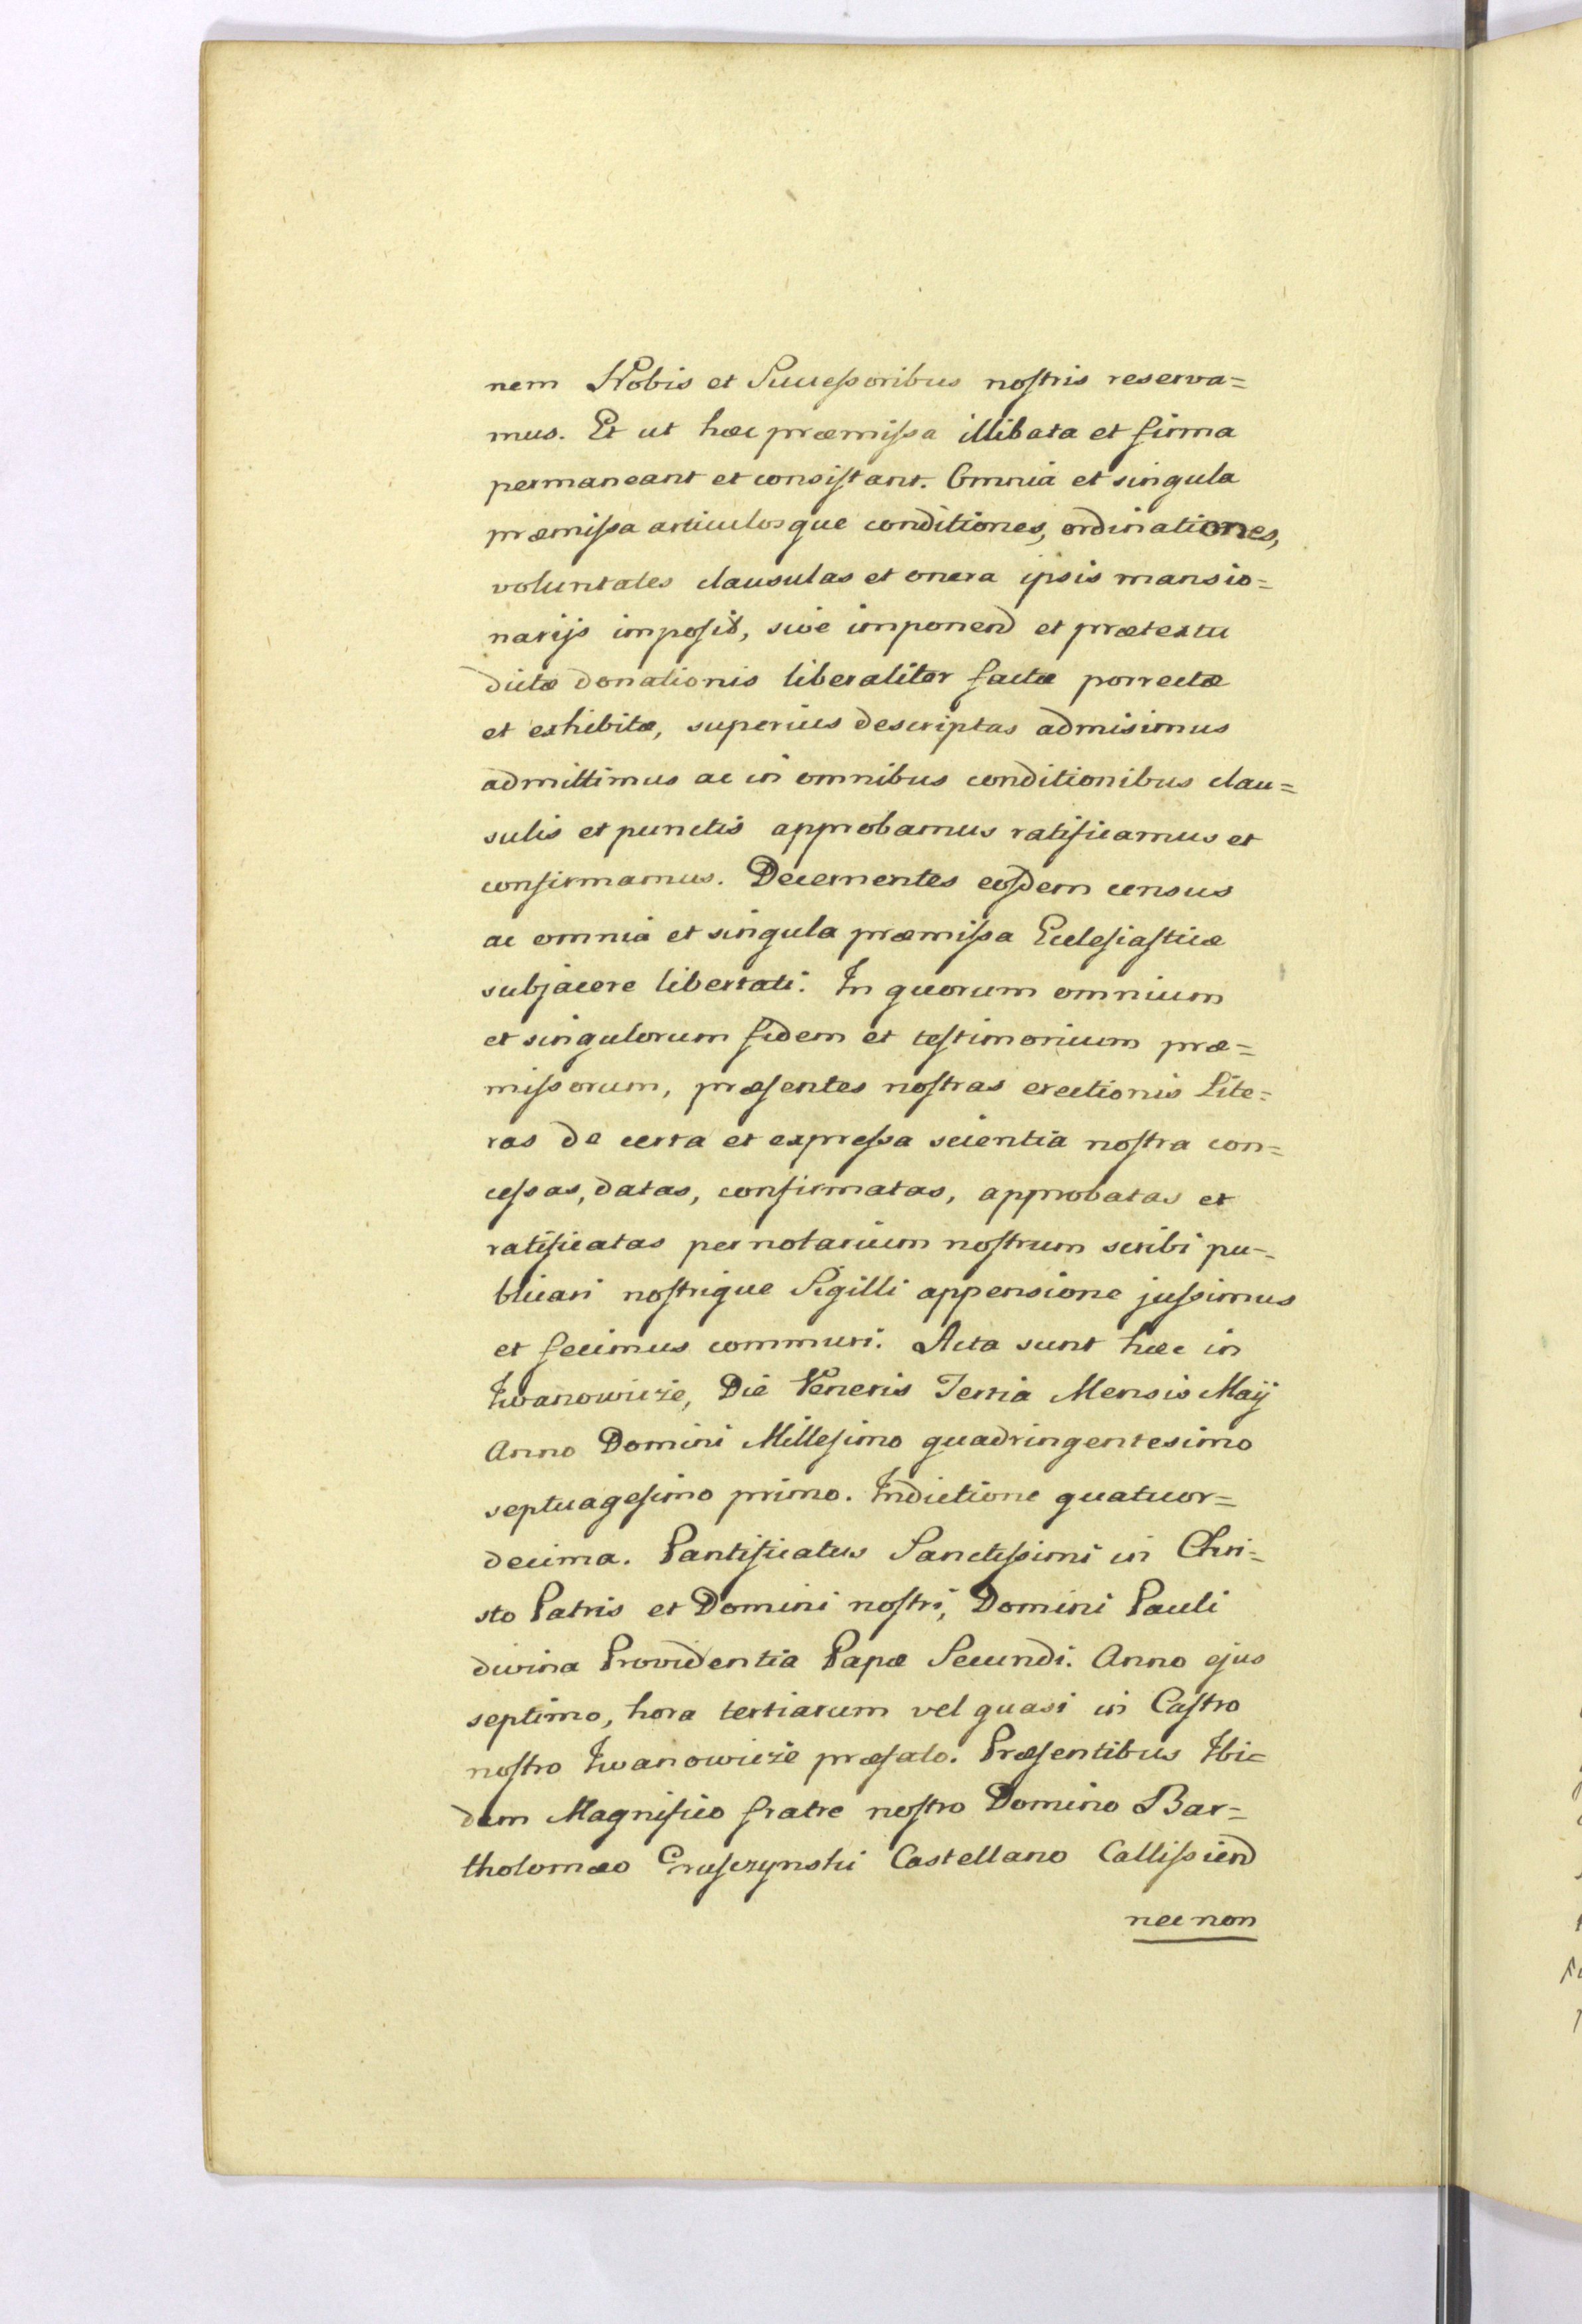 nem Nobis et Successoribus nostris reserva=
mus. Et ut hæc præmissa illibata et firma
permaneant et consistant. Omnia et singula
præmissa articulosque conditiones, ordinationes,
voluntates clausulas et onera ipsis mansio=
narijs imposit, sive imponend et prætextu
dictæ donationis liberaliter factæ porrectæ
et exhibitæ, superius descriptas admisimus
admittimus ac in omnibus conditionibus clau=
sulis et punctis approbamus ratificamus et
confirmamus. Decernentes eosdem census
ac omnia et singula præmissa Ecclesiasticæ
subjacere libertati. In quorum omnium
et singulorum fidem et testimonium præ=
missorum, præsentes nostras erectionis Lite=
ras de certa et expressa scientia nostra con=
cessas, datas, confirmatas, approbatas et
ratificatas per notarium nostrum scribi pu=
blicari nostrique Sigilli appensione jussimus
et fecimus communi. Acta sunt hæc in
Iwanowicze, Die Veneris Tertia Mensis Maij
Anno Domini Millesimo quadringentesimo
septuagesimo primo. Indictione quatuor=
decima. Pantificatus Sanctissimi in Chri=
sto Patris et Domini nostri, Domini Pauli
divina Providentia Papæ Secundi. Anno ejus
septimo, hora tertiarum vel quasi in Castro
nostro Iwanowicze præfato. Præsentibus Ibi=
dem Magnifico fratre nostro Domino Bar=
tholomæo Gruszczynski Castellano Callissiend
nec non